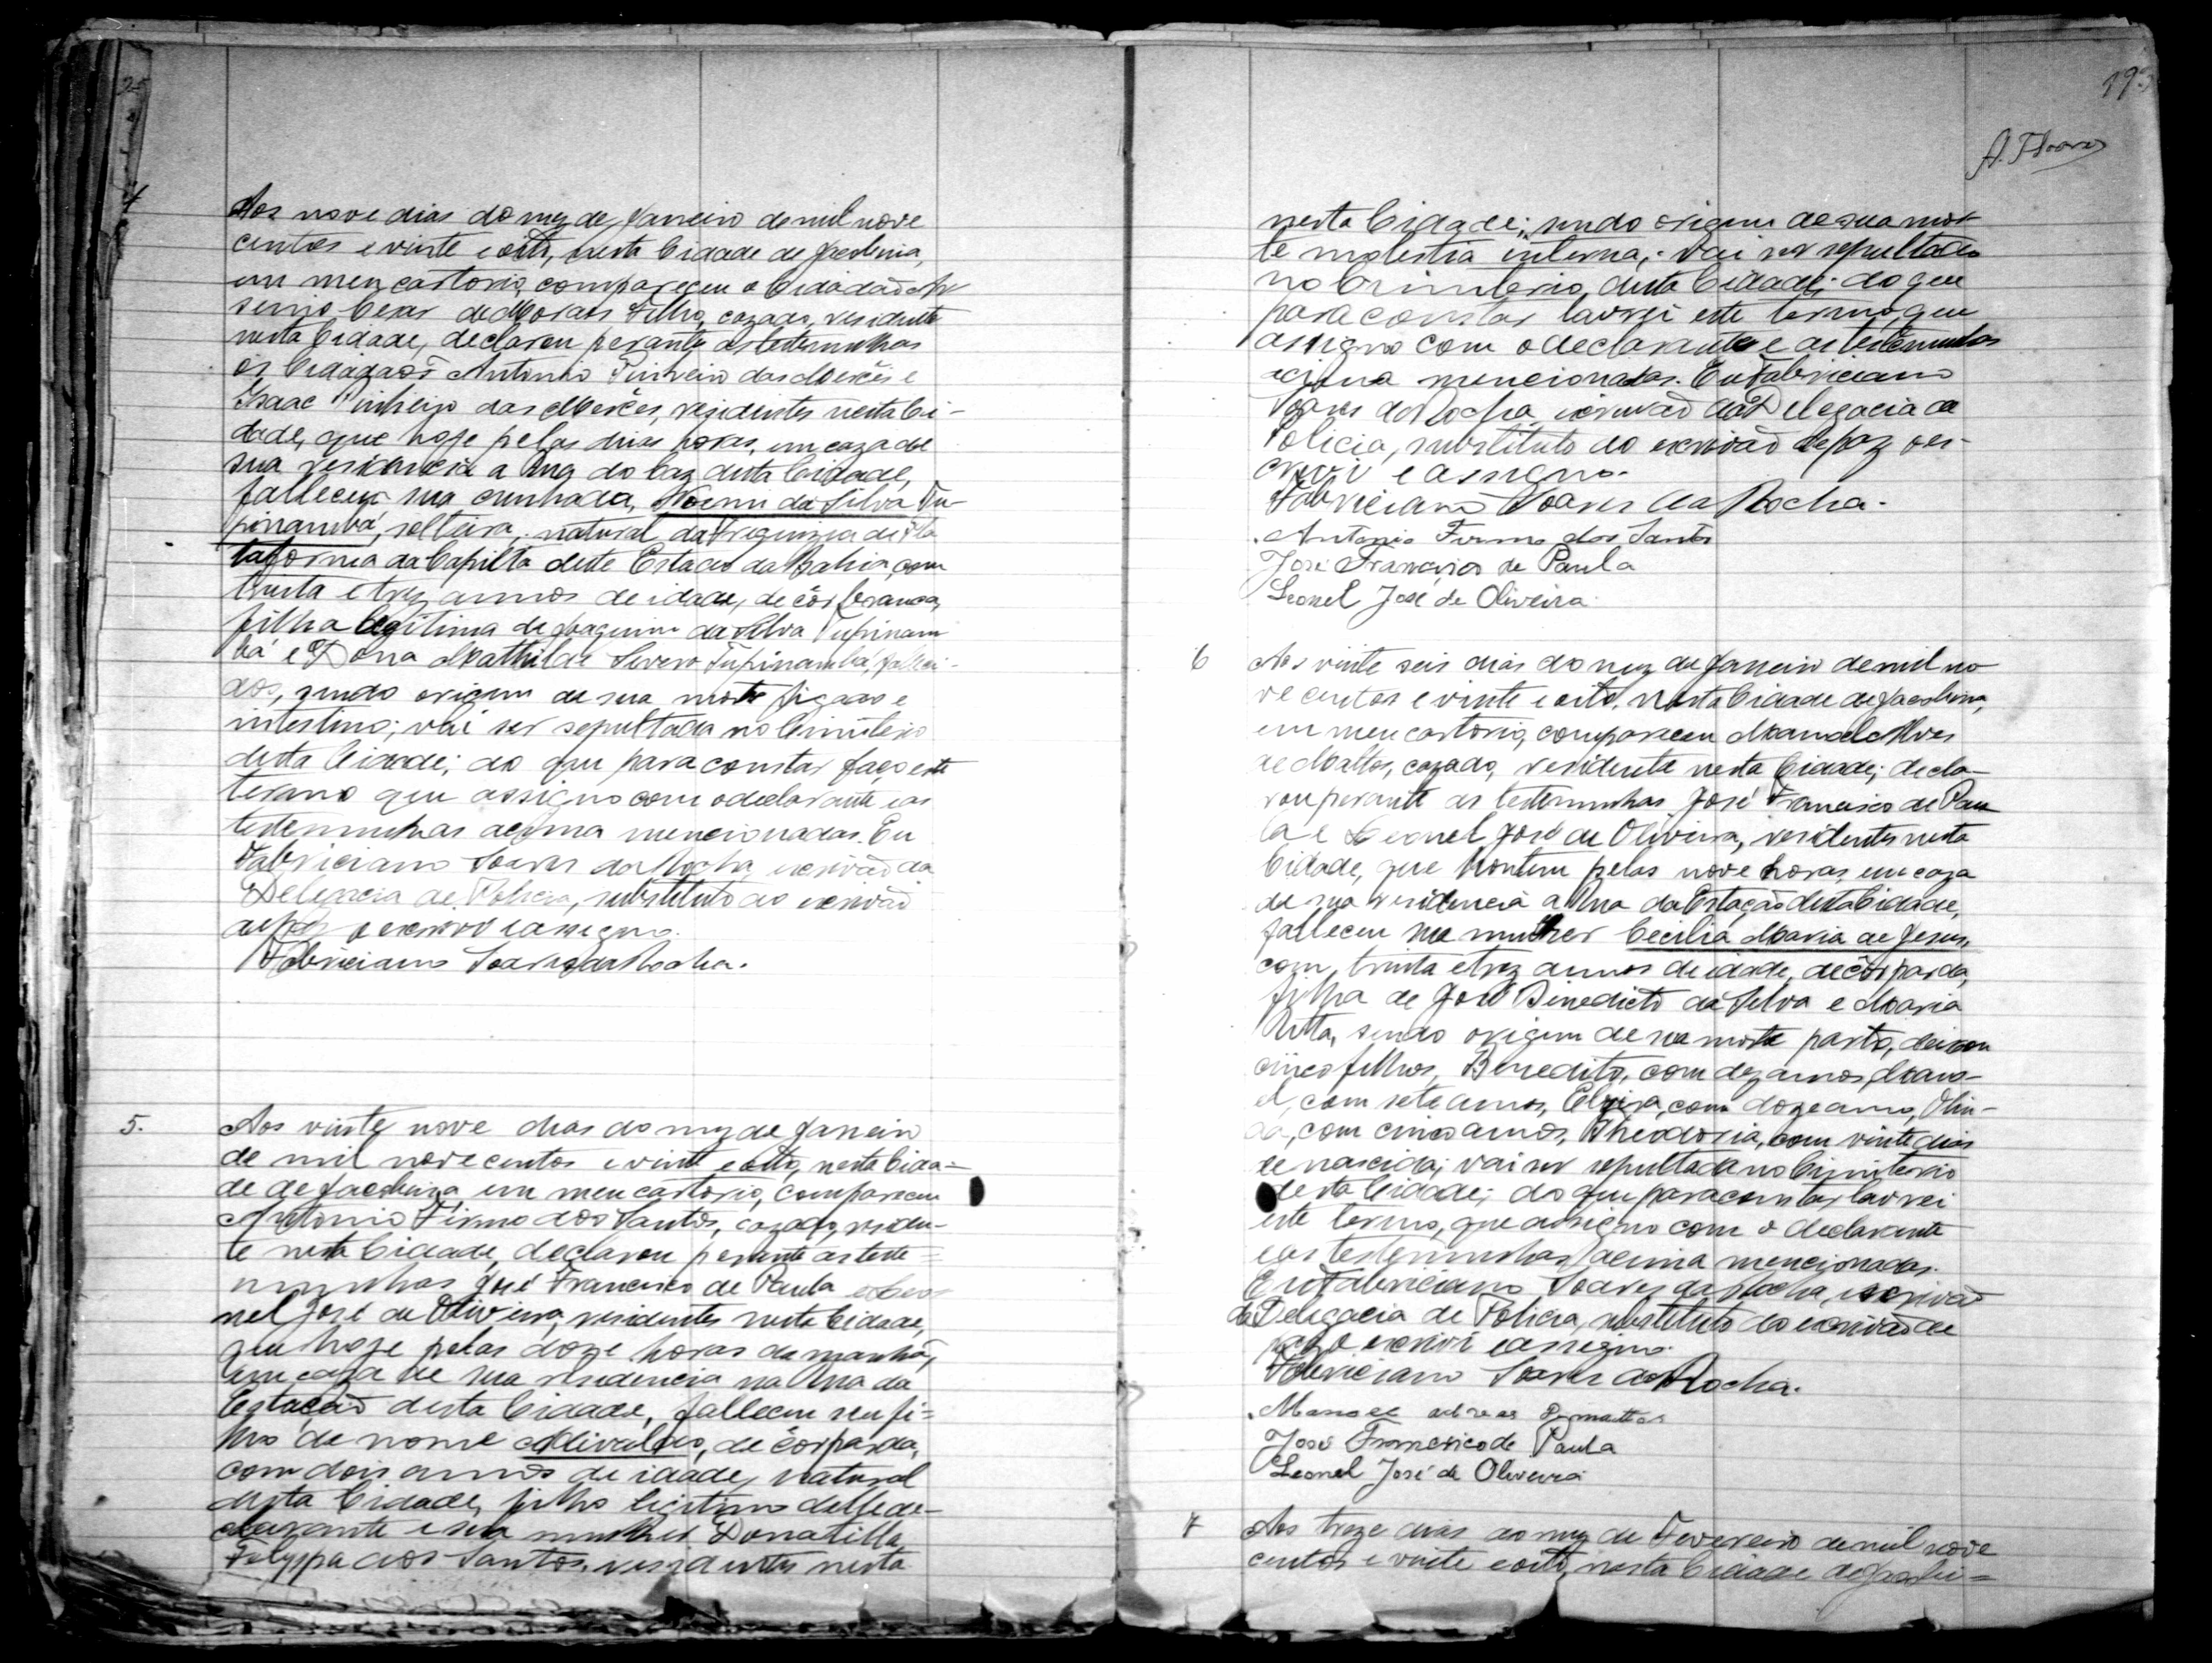 4
Aos nove dias do mez de Janeiro de mil nove
centos e vinte e oito, nesta Cidade de Jacobina,
em meu cartorio, compareceu o Cidadão Ar
senio Cesar de Moraes Filho, cazado, residente
nesta Cidade, declarou perante as testemunhas
os Cidadãos Antonio Pinheiro das Mercês e
Isaac Pinheiro das Mercês, residentes nesta Ci-
dade, que hoje pelas duas horas, em caza de
sua residencia a Rua do Caz desta Cidade,
falleceu sua cunhada, Noemi da Silva Tu-
pinambá, solteira, natural da Freguizia de Pla
taforma da Capital deste Estado da Bahia, com
trinta e trez annos de idade, de côr branca,
filha legitima de Joaquim da Silva Tupinam
bá e Dona Mathilde Severo Tupinambá, falleci-
dos, sendo origem de sua morte figado e
intestino; vai ser sepultada no Cimiterio
desta Cidade; do que para constar faço este
termo que assigno com o declarante e as
testemunhas acima mencionadas. Eu
Fabriciano Soares da Rocha, escrivão da
Delegacia de Policia, substituto do escrivão
de paz o escrevi e assigno.
Fabriciano Soares da Rocha.
5.
Aos vinte nove dias do mez de Janeiro
de mil nove centos e vinte e oito, nesta Cida=
de de Jacobina, em meu cartorio, compareceu
Antonio Firmo dos Santos, cazado, residen-
te nesta Cidade, declarou perante as teste=
munhas José Francisco de Paula e Leo
nel José de Oliveira, residentes nesta Cidade,
que hoje pelas doze horas da manhã,
em caza de sua residencia na Rua da
Estação desta Cidade, falleceu seu fi=
lho de nome Alivaldo, de côr parda,
com dois annos de idade, natural
desta Cidade, filho legitimo delle de-
clarante e sua mulher Donatilla
Felyppa dos Santos, residentes nesta
A. Soares
nesta Cidade; sendo origem de sua mor
te molestia interna; vai ser sepultado
no Cimiterio desta Cidade; do que
para constar lavrei este termo, que
assigno com o declarante e as testemunhas
acima mencionadas. Eu Fabriciano
Soares da Rocha, escrivão da Delegacia de
Policia, substituto do escrivão de paz o es-
crevi e assigno.
Fabriciano Soares da Rocha.
Antonio Firmo dos Santos
José Francisco de Paula
Leonel José de Oliveira
6
Aos vinte seis dias do mez de Janeiro de mil no
ve centos e vinte e oito, nesta Cidade de Jacobina,
em meu cartorio, compareceu Manoel Alves
de Mattos, cazado, residente nesta Cidade; decla-
rou perante as testemunhas José Francisco de Pau
la e Leonel José de Oliveira, residentes nesta
Cidade, que hontem pelas nove horas, em caza
de sua residencia a Rua da Estação desta Cidade,
falleceu sua mulher Cecilia Maria de Jesus,
com trinta e trez annos de idade, de côr parda,
filha de José Binedicto da Silva e Maria
Ritta, sendo origem de sua morte parto, deixou
cinco filhos, Benedito, com dez annos, Mano-
el, com sete annos, Elzira, com doze annos, Olin-
da, com cinco annos, Theodoria, com vinte dias
de nascida; vai ser sepultada no Cimiterio
desta Cidade; do que para constar lavrei
este termo, que assigno com o declarante
e as testemunhas acima mencionadas.
Eu Fabriciano Soares da Rocha, escrivão
da Delegacia de Policia, substituto do escrivão de
paz o escrevi e assigno.
Fabriciano Soares da Rocha.
Manoel Alves de Mattos
José Francisco de Paula
Leonel José de Oliveira
7
Aos treze dias do mez de Fevereiro de mil nove
centos e vinte e oito, nesta Cidade de Jacobi=